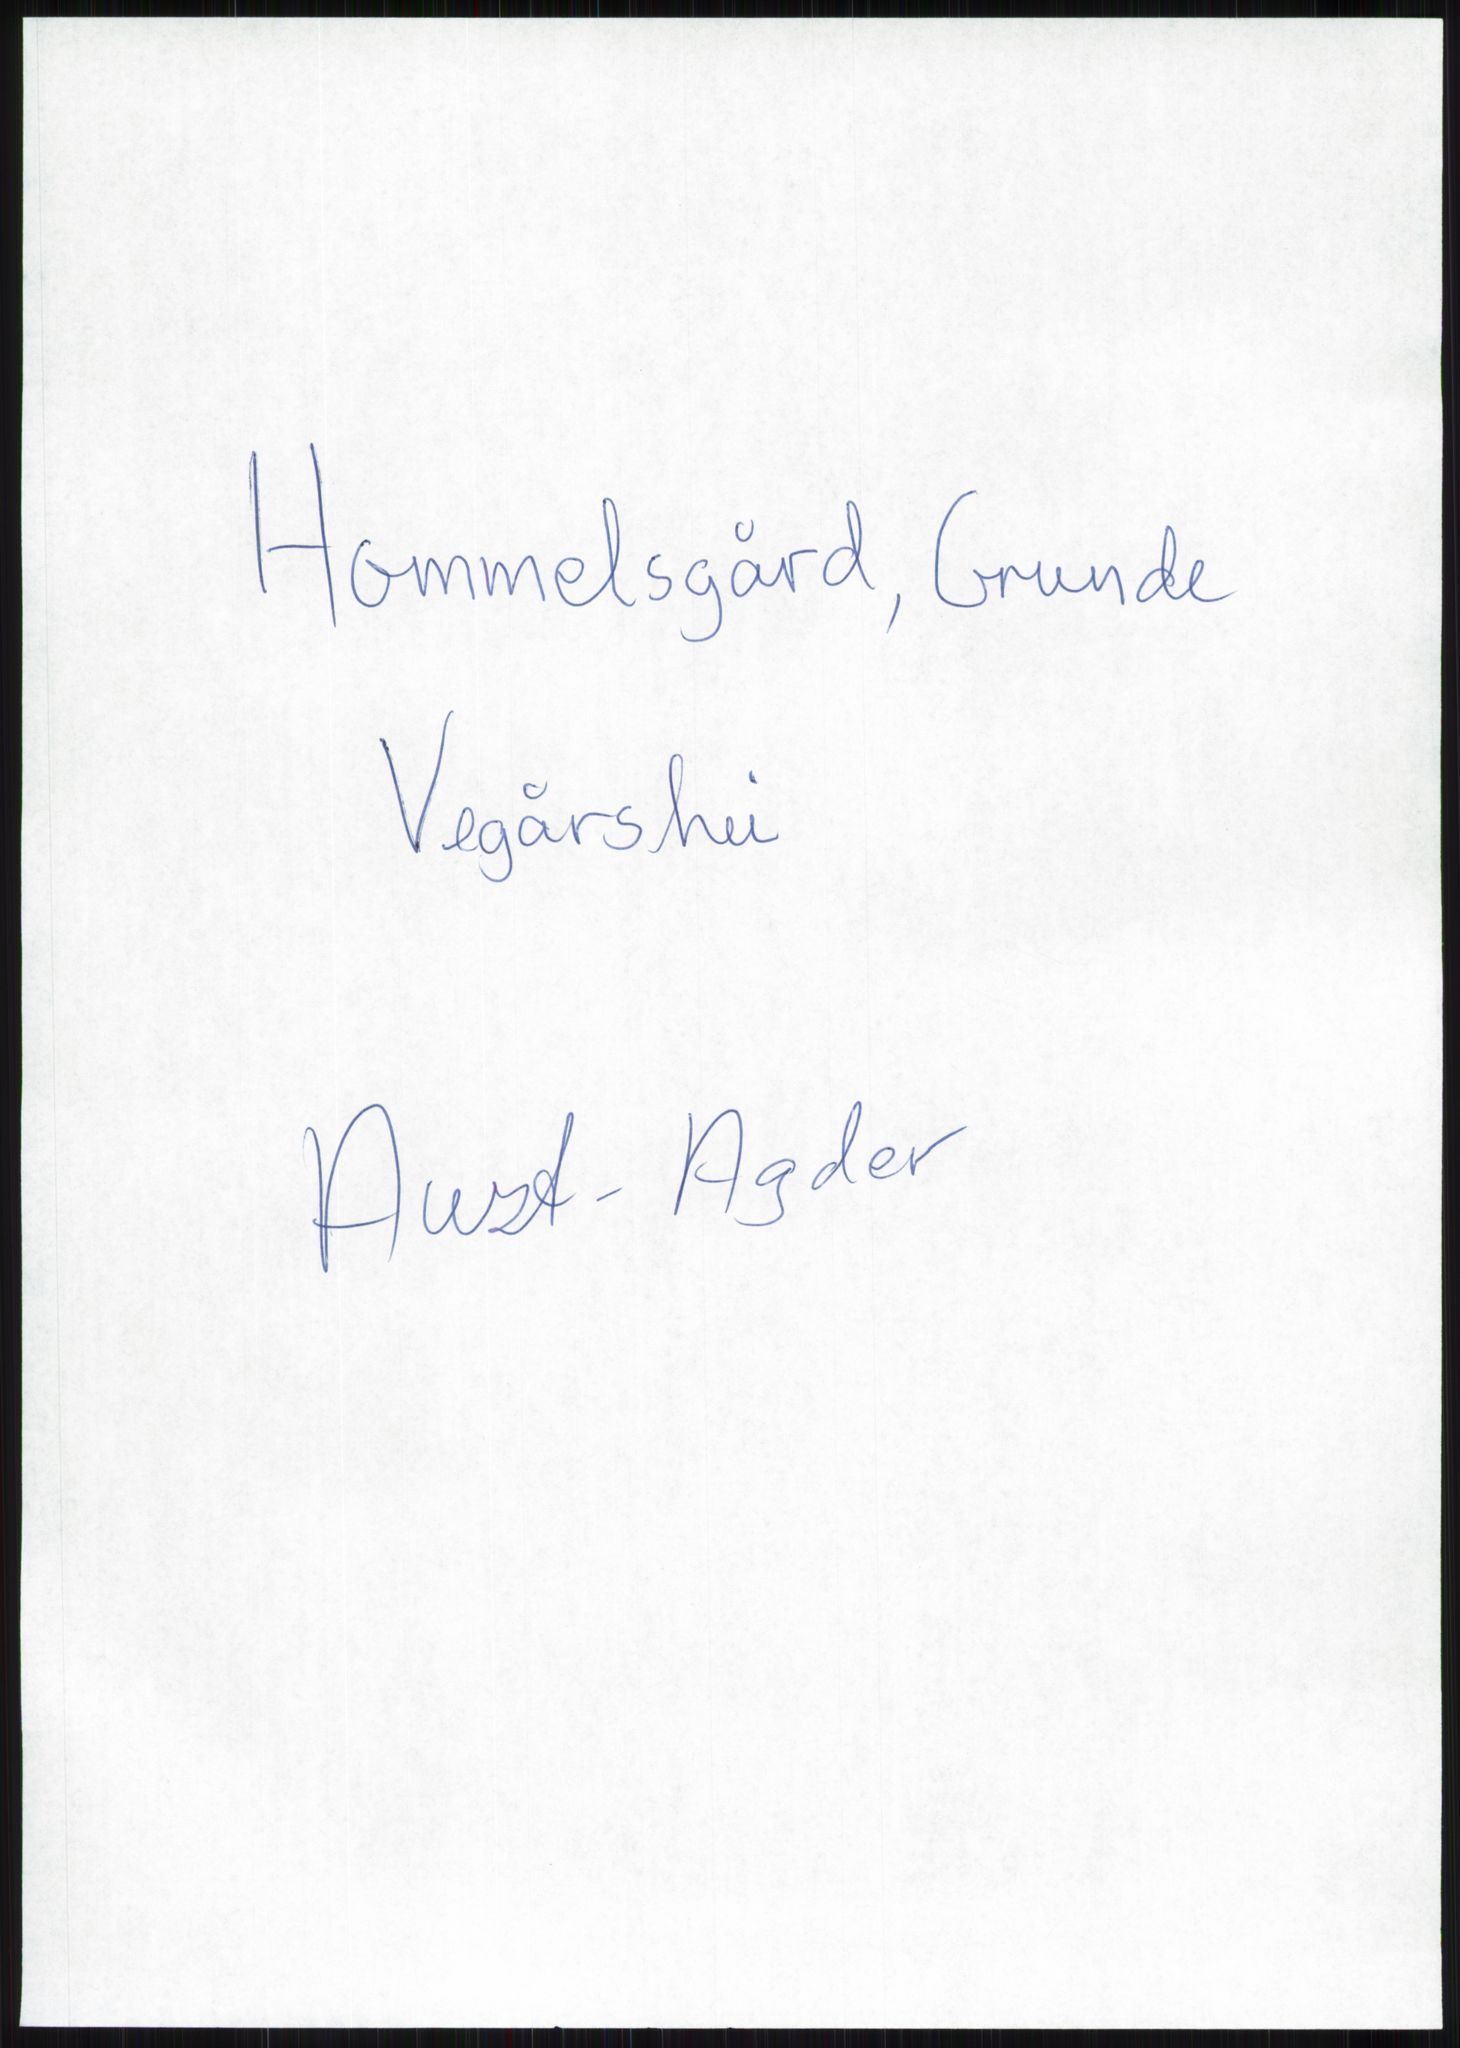 Hommelsgård, Grunde
Vegårshei
Aust-Agder